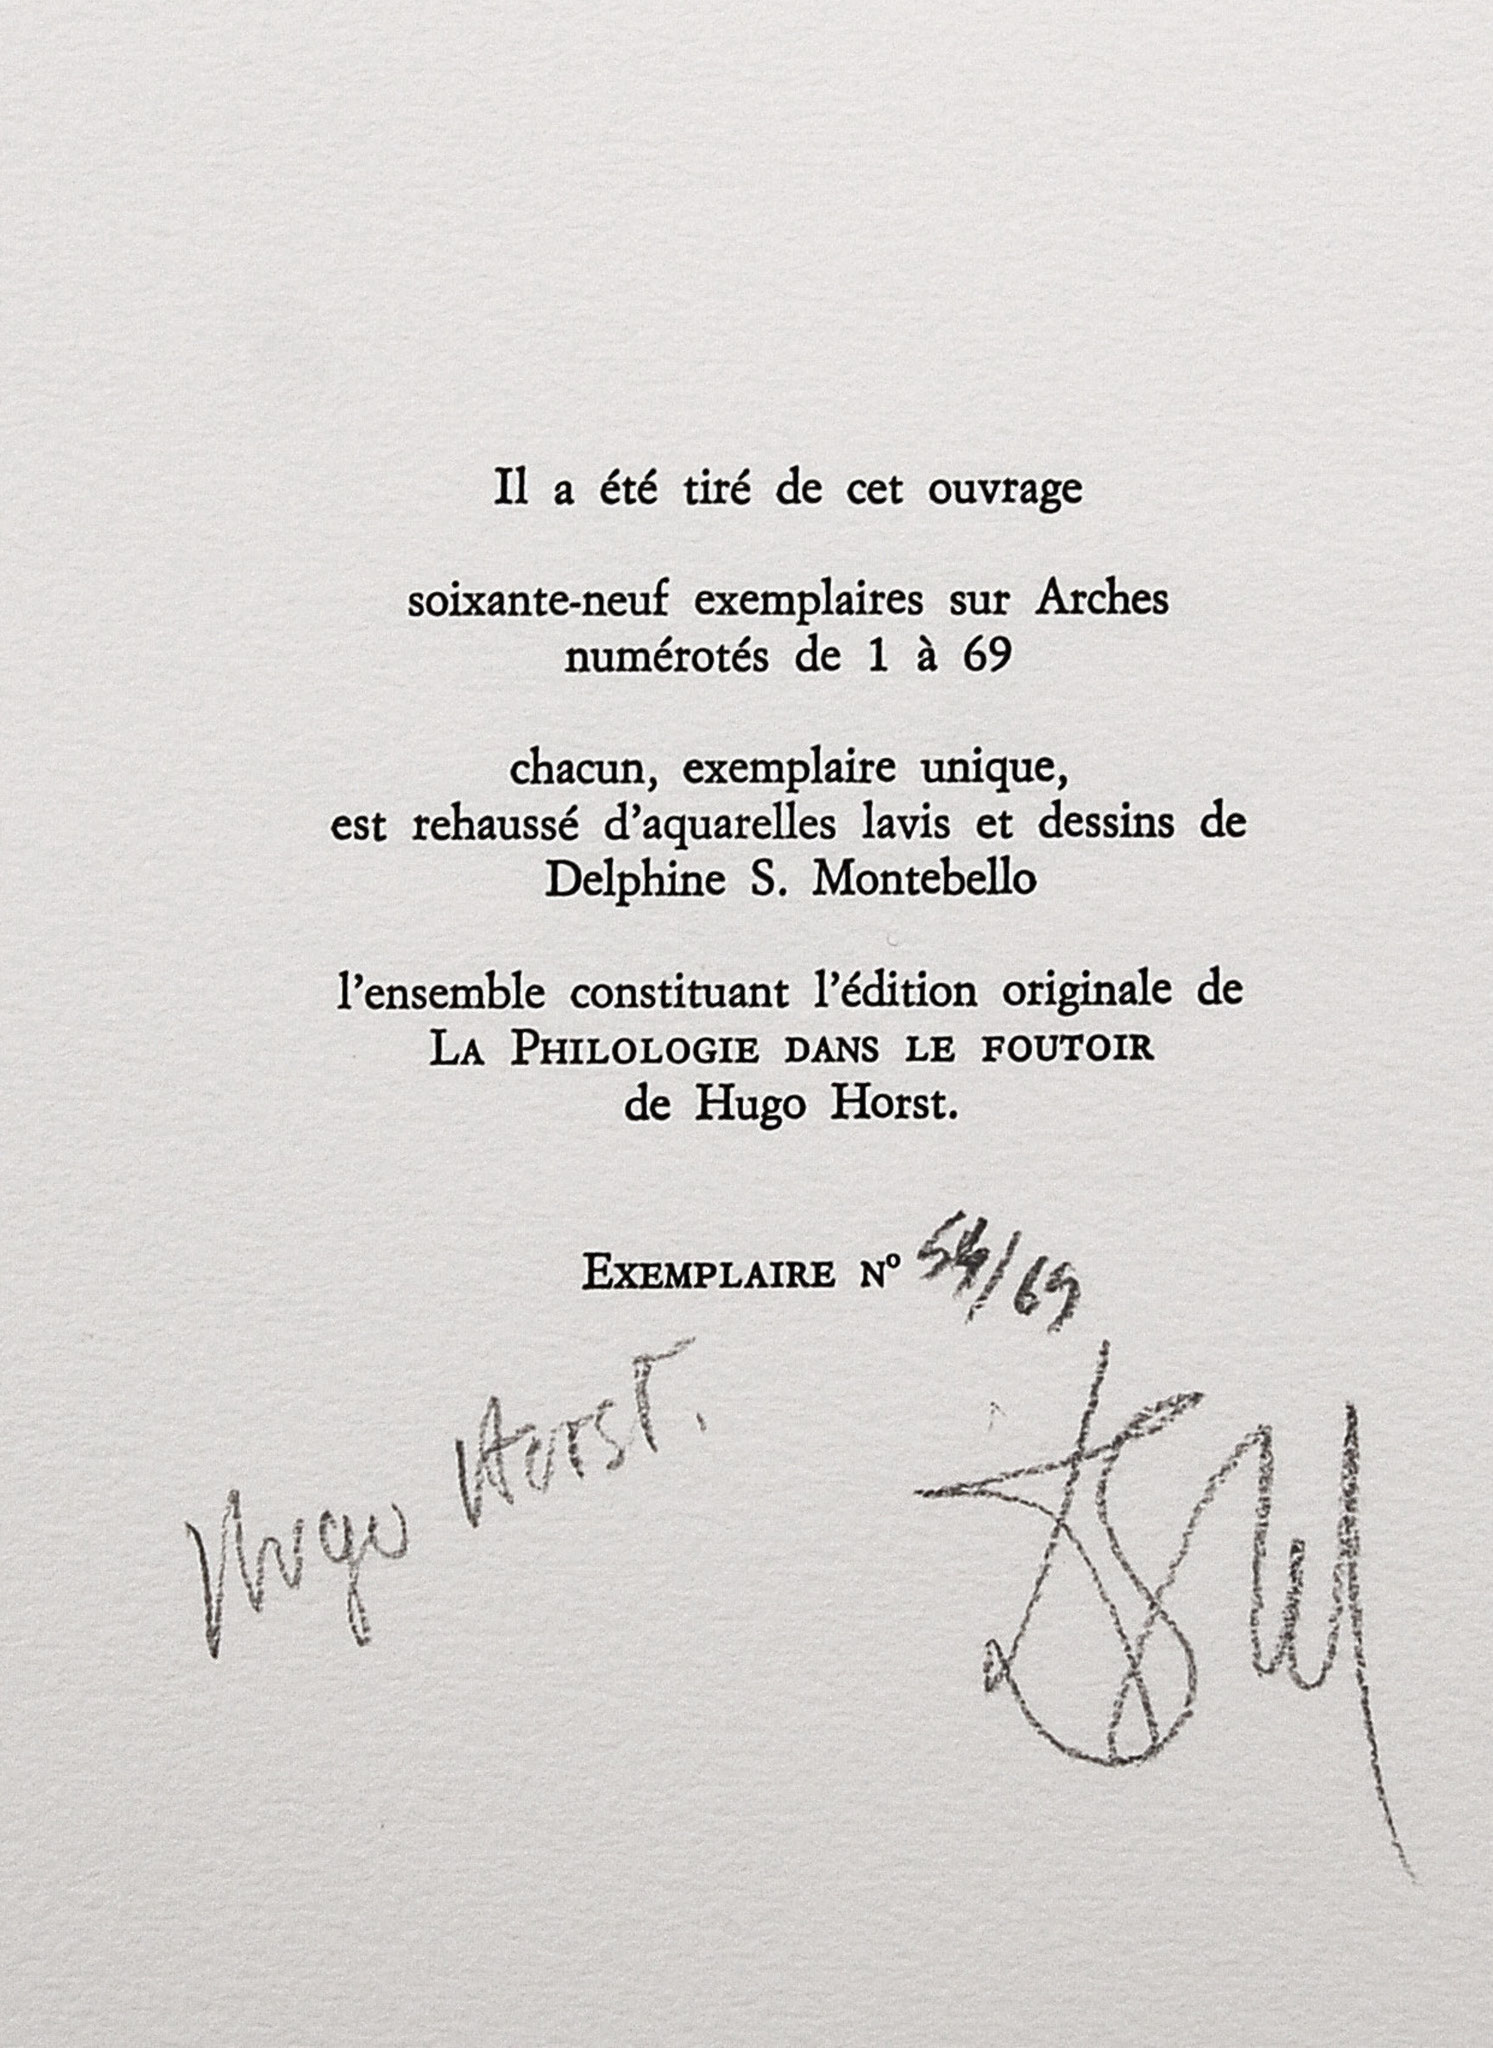 Il a été tiré de cet ouvrage
soixante-neuf exemplaires sur Arches
numérotés de 1 à 69
chacun, exemplaire unique,
est rehaussé d’aquarelles lavis et dessins de
Delphine S. Montebello
l’ensemble constituant l’édition originale de
LA PHILOLOGIE DANS LE FOUTOIR
de Hugo Horst.
EXEMPLAIRE Nº 54/69
Hugo Horst.